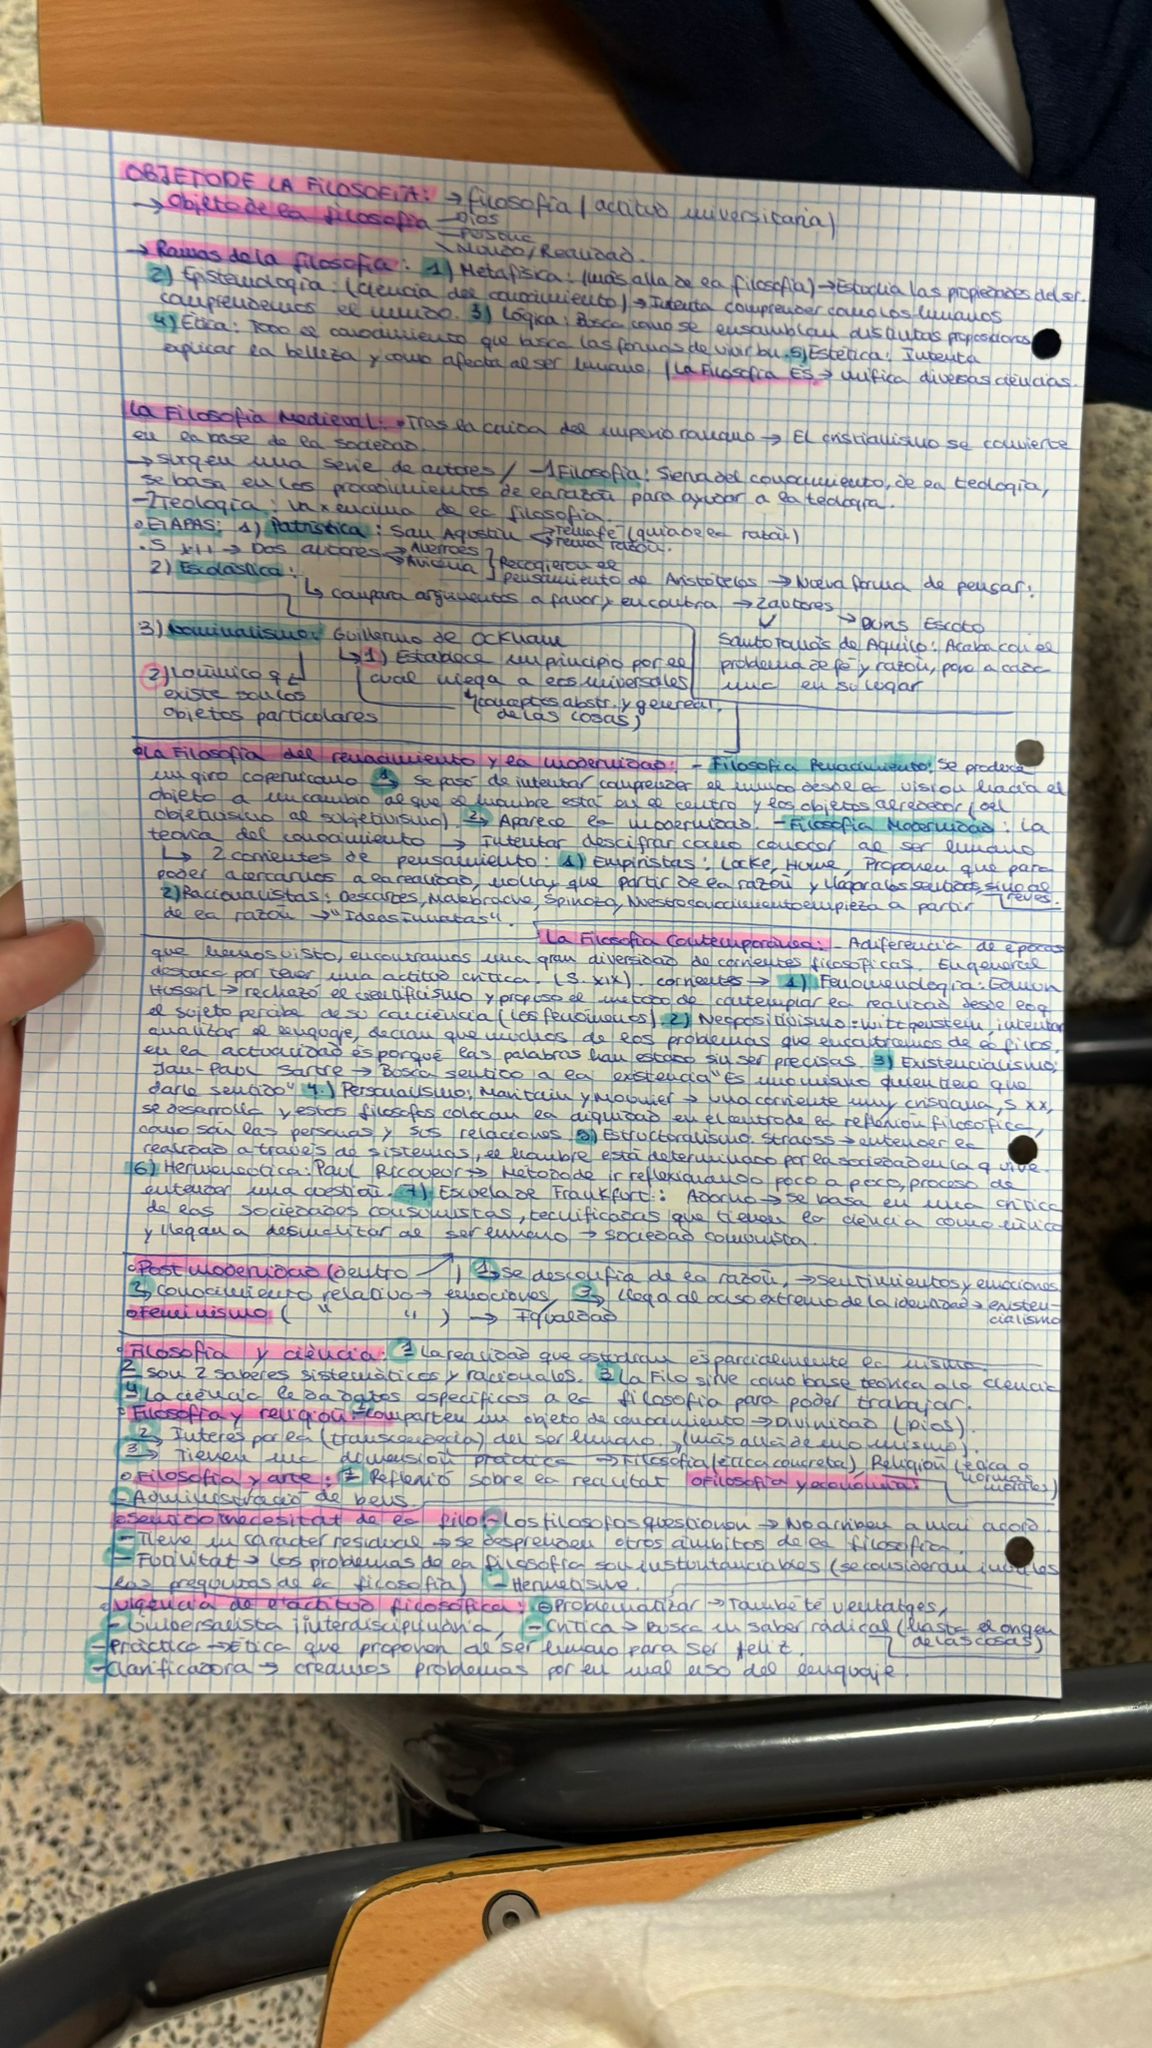 OBJETO DE LA FILOSOFIA: → filosofia (actitud universitaria)
→ Objeto de la filosofia – Dios
Mundo/Realidad.
→ Ramas de la filosofia: 1) Metafísica: (más alla de la filosofia) → Estudia las propiedades del ser.
2) Epistemología: (ciencia del conocimiento) → Intenta comprender como los humanos
comprendemos el mundo. 3) Lógica: Busca como se ensamblan distintas proposiciones
4) Etica: Todo el conocimiento que busca las formas de vivir bu. 5) Estética: Intenta
explicar la belleza y como afecta al ser humano. | La Filosofia ES → unifica diversas ciencias.
La Filosofia Medieval: • Tras la caida del imperio romano → El cristianismo se convierte
en la base de la sociedad.
→ surgen una serie de autores / – 1 Filosofia: Sierva del conocimiento, de la teologia,
se basa en los procedimientos de la razón para ayudar a la teologia.
– Teologia: va x encima de la filosofia.
• ETAPAS: 1) Patristica: San Agustin → Tema fe (guia de la razón)
→ Tema razón.
• S XII → Dos autores → Averroes
→ Avicena Recogieron el
2) Escolástica: pensamiento de Aristóteles → Nueva forma de pensar:
↳ Compara argumentos a favor y en contra → 2 autores
→ Duns Escoto
3) Nominalismo: Guillermo de Ockham
Santo Tomás de Aquino: Acaba con el
↳ 1) Establece un principio por el
problema de fe y razón, pone a cada
2) Lo único q
cual niega a los universales
una en su lugar
existe son los
(conceptos abstr. y general.
objetos particulares
de las cosas)
• La Filosofia del renacimiento y la modernidad: – Filosofia Renacimiento: Se produce
un giro copernicano 1 → se pasó de intentar comprender el mundo desde la visión hacia el
objeto a un cambio al que el hombre está en el centro y los objetos alrededor (del
objetivismo al subjetivismo). 2 → Aparece la modernidad. – Filosofia Modernidad: La
teoria del conocimiento → Intentar descifrar como conocer al ser humano
↳ 2 corrientes de pensamiento: 1) Empiristas: Locke, Hume, Proponen que para
poder acercarnos a la realidad, no hay que partir de la razón y llegar a los sentidos, sino al
reves.
2) Racionalistas: Descartes, Malebrache, Spinoza, Nuestro conocimiento empieza a partir
de la razón → "Ideas Innatas".
La Filosofia Contemporánea: – A diferencia de épocas
que hemos visto, encontramos una gran diversidad de corrientes filosoficas. En general
destaca por tener una actitud critica. (S. XIX). corrientes → 1) Fenomenologia: Edmun
Husserl → rechazó el cientificismo y propuso el metodo de contemplar la realidad desde lo q
el sujeto percibe de su conciencia (los fenómenos) 2) Neopositivismo: Wittgenstein, intentar
analizar el lenguaje, decian que muchos de los problemas que encontramos de la filos.
en la actualidad es porque las palabras han estado sin ser precisas. 3) Existencialismo:
Jan-Paul Sartre → Busca sentido a la existencia "Es uno mismo quien tiene que
darle sentido" 4) Personalismo: Maritain y Mounier → una corriente muy cristiana, S XX,
se desarrolla y estos filosofos colocan la dignidad en el centro de la reflexión filosofica,
como son las personas y sus relaciones. 5) Estructuralismo. Strauss → entender la
realidad a través de sistemas, el hombre está determinado por la sociedad en la q vive.
6) Hermeneútica: Paul Ricoeur → Método de ir reflexionando poco a poco, proceso de
entender una cuestión. 7) Escuela de Frankfort: Adorno → se basa en una critica
de las sociedades consumistas, tecnificadas que tienen la ciencia como única
y llegan a desmeritar al ser humano → sociedad comunista.
• Postmodernidad (dentro ) 1 → se desconfia de la razón, → sentimientos y emociones
2 → conocimiento relativo → emociones 3 → Llega al caso extremo de la idenidad → existen-
cialismo
• Feminismo ( " " ) → Igualdad
• Filosofia y ciéncia: 1 La realidad que estudian es parcialmente la misma.
2 Son 2 saberes sistemáticos y racionales. 3 La Filo sirve como base teorica a la ciencia
4 La ciencia le da datos especificos a la filosofia para poder trabajar.
• Filosofia y religion: 1 Comparten un objeto de conocimiento → Divinidad (Dios).
2 → Interes por la (transcendecia) del ser humano. (más alla de uno mismo).
3 → Tienen una dimensión práctica → Filosofia (etica concreta), Religion (etica o
normas
morales)
• Filosofia y arte: 1 Reflexió sobre la realitat • Filosofia y economia:
– Administració de bens.
• Sentido/necesitat de la filo: – Los filosofos questionen → No arriben a mai acord.
– Tiene un caracter residual → se desprenden otros ambitos de la filosofia.
– Futilitat → Los problemas de la filosofia son insustanciables (se consideran inutiles
las preguntas de la filosofia) – Hermetisme.
• Vigencia de l'actitud filosófica: Problematizar → També té ventatges,
– Universalista, interdisciplinaria, – Critica → Busca un saber radical (hasta el origen
de las cosas)
– Práctico → Etica que proponen al ser humano para ser feliz.
– Clarificadora → creamos problemas por en mal uso del lenguaje.